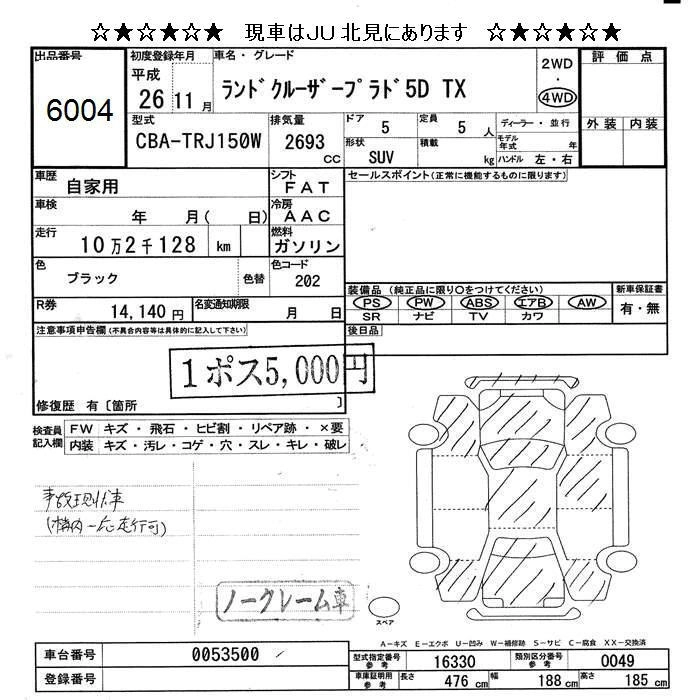 ☆★☆★☆★ 現車はJU北見にあります ☆★☆★☆★
出品番号 初度登録年月 車名・グレード 2WD 評価点
6004 平成 26 11月 ランドクルーザープラド5D TX ・ 4WD
型式 排気量 ドア 定員 ディーラー・並行 外装 内装
CBA-TRJ150W 2693 cc 5 5 人 モデル年式 年
形状 SUV 積載 kg ハンドル 左・右
車歴 自家用 シフト FAT セールスポイント(正常に機能するものに限ります)
車検 年 月( 日) 冷房 AAC
走行 10万2千128 km 燃料 ガソリン
色 ブラック 色替 色コード 202
装備品 (純正品に限り○をつけてください) 新車保証書
R券 14,140円 名変通知期限 月 日 PS PW ABS エアB AW 有・無
SR ナビ TV カワ
注意事項申告欄(不具合内容等は具体的に記入して下さい) 後日品
1ポス5,000円
修復歴 有〔箇所 〕
検査員記入欄 FW キズ・飛石・ヒビ割・リペア跡・×要
内装 キズ・汚レ・コゲ・穴・スレ・キレ・破レ
事故現状車
(構内一応走行可)
ノークレーム車
スペア
A-キズ E-エクボ U-凹み W-補修跡 S-サビ C-腐食 XX-交換済
車台番号 0053500 型式指定番号 参考 16330 類別区分番号 参考 0049
登録番号 車庫証明用 参考 長さ 476 cm 幅 188 cm 高さ 185 cm